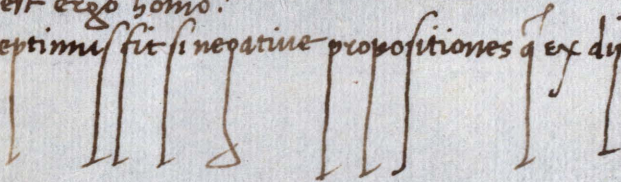 est ergo homo.
eptimus fit si negative propositiones q̄ ex di